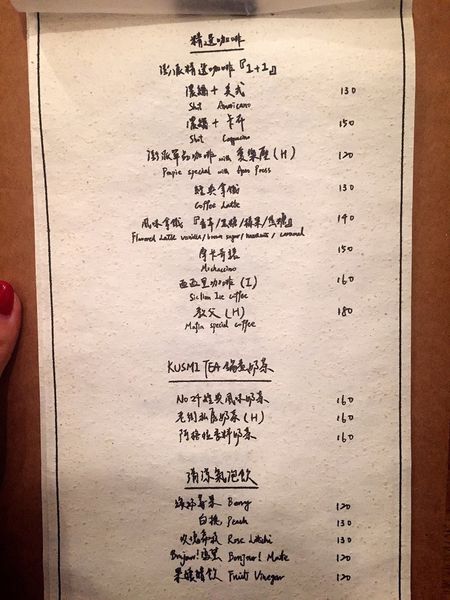 精選咖啡
澎派精選咖啡『1+1』
濃縮 + 美式 130
Shot Americano
濃縮 + 卡布 150
Shot Cappuccino
澎派單品咖啡 with 愛樂壓 (H) 120
special with Press
經典拿鐵 130
Coffee Latte
風味拿鐵『香草/黑糖/榛果/焦糖』 140
Flavored Latte vanilla/brown sugar/hazelnuts/caramel
摩卡奇諾 150
Mochaccino
西西里咖啡 (I) 160
Sicilian Ice coffee
教父 (H) 180
Mafia special coffee
KUSMI TEA 鍋煮奶茶
No 24 經典風味奶茶 160
老倒私房奶茶 (H) 160
阿格性香料奶茶 160
清涼氣泡飲
莓果 Berry 120
白桃 Peach 130
玫瑰荔枝 Rose Litchi 130
Bonjour! Bonjour! Mate 120
果釀醋飲 Fruits Vinegar 120